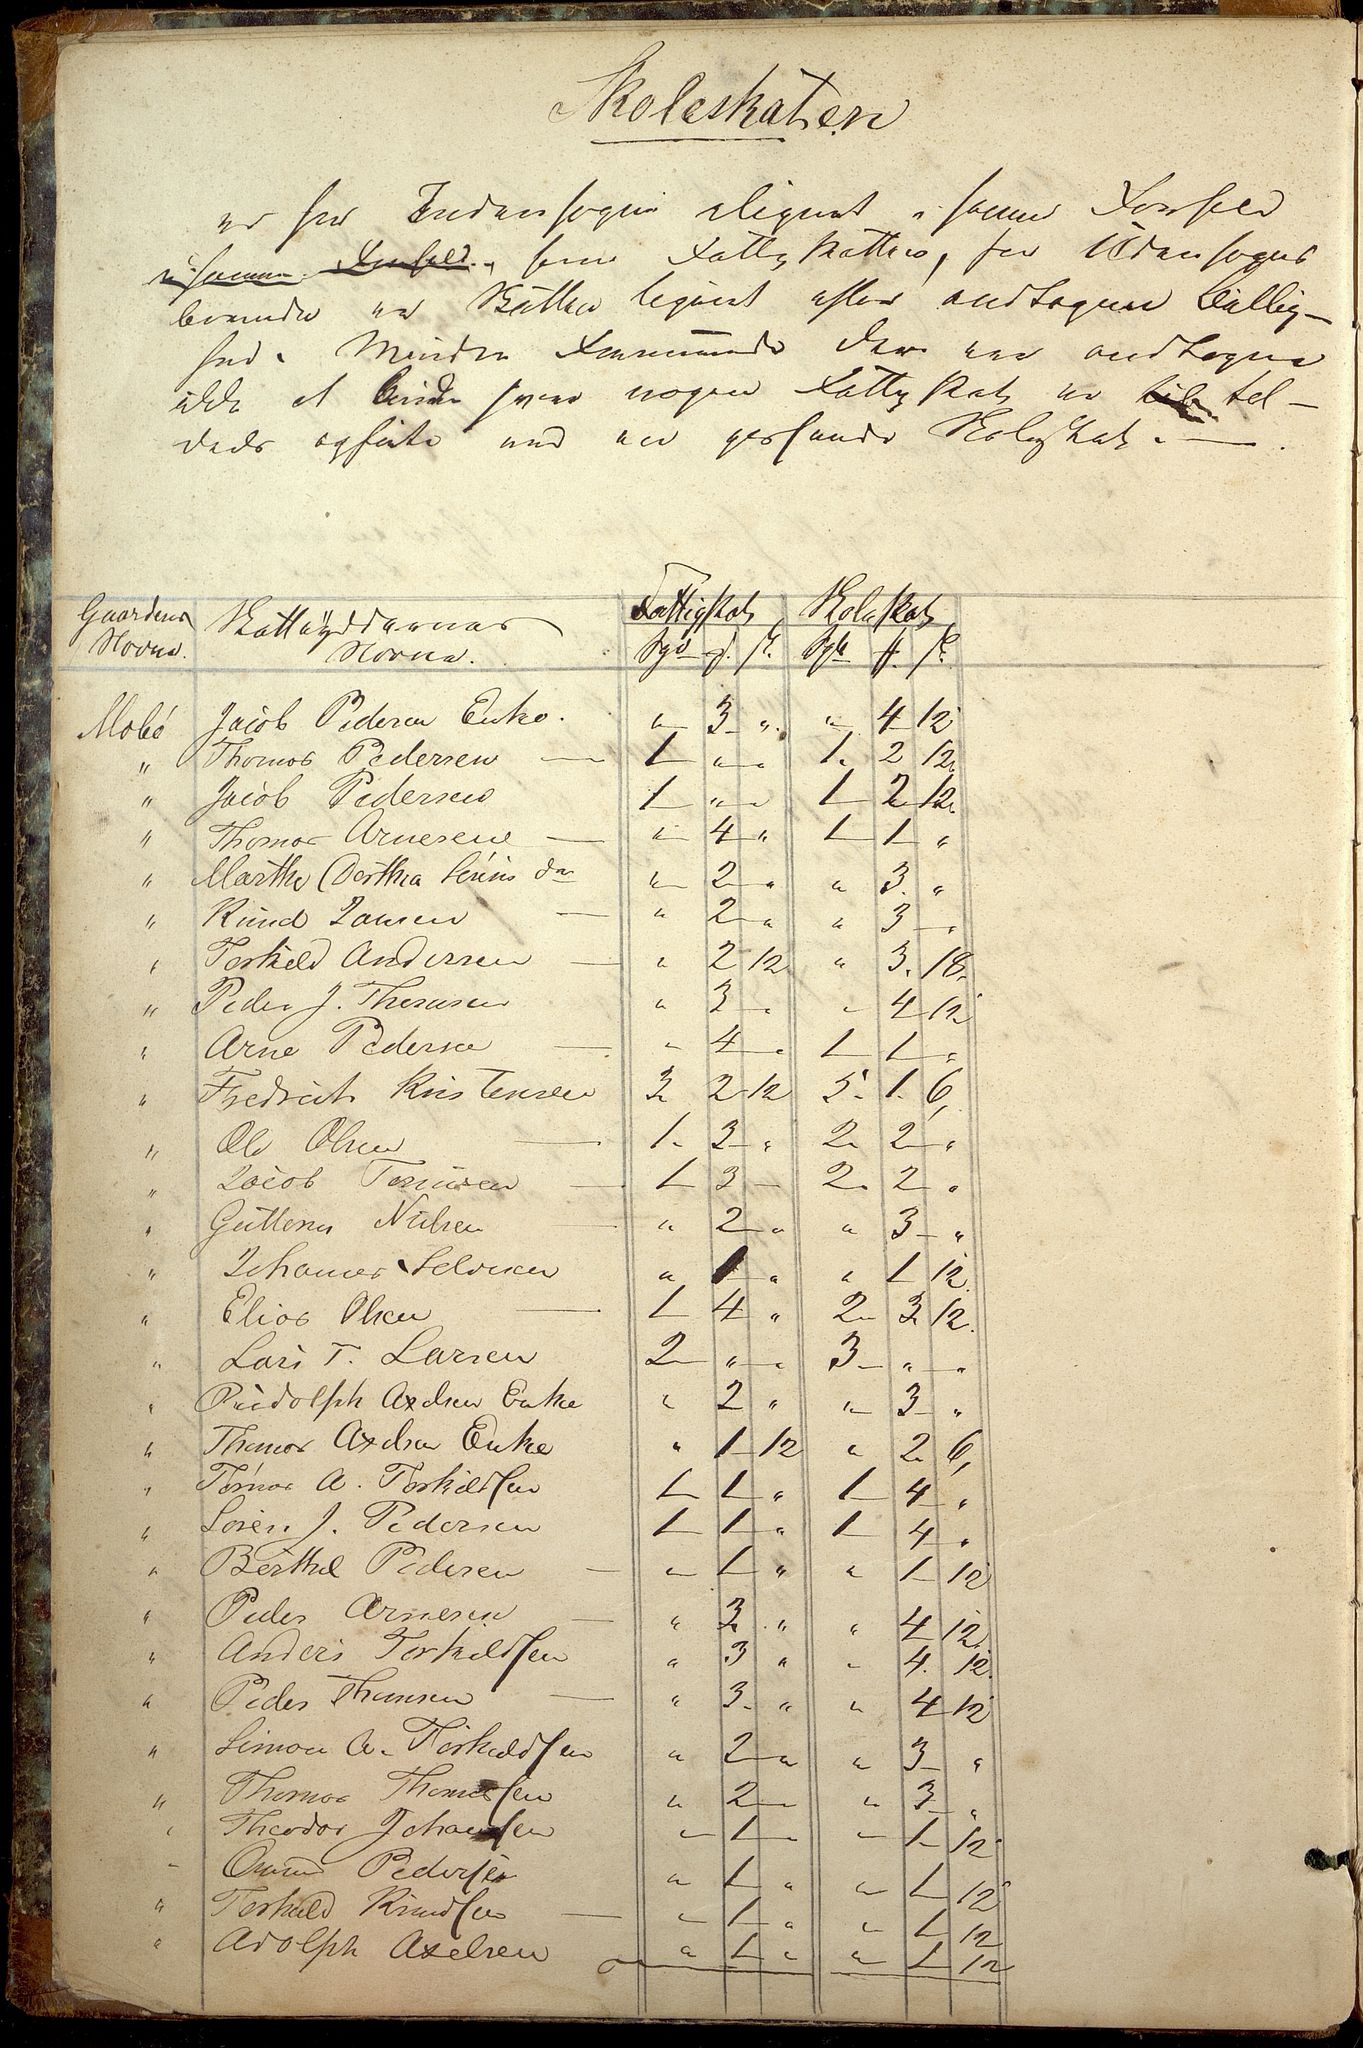 Skoleskatten
er for Indensogns alignet i samme Forhold
i samme Forhold som Fattigskatten, for Udensogns
boende er Skatten lignet efter andtagen Billig-
hed. Mindre Formuende der ere andtagne
ikke at kunde svare nogen Fattigskat er til-
deels opførte med en passende Skoleskat. —
Gaardens Skatteydernes Fattigskat Skoleskat
Navne. Navne. Spd # ß. Spd # ß.
Molbö Jacob Pedersen Enke. " 3 " " 4 12
" Thomas Pedersen — 1 " " 1 2 12
" Jacob Pedersen 1 " " 1 2 12
" Thomas Arnesen — " 4 " 1 1 "
" Marthe Dorthea Sörens dr " 2 " " 3 "
" Knud Jansen — " 2 " " 3 "
" Terkeld Andersen — " 2 12 " 3 18
" Peder J. Thomsen " 3 " " 4 12
" Arne Pedersen — " 4 " 1 1 "
" Fredrich Kristensen 3 2 12 5 1 6
" Ole Olsen — 1 3 " 2 2 "
" Jacob Tönnesen — 1 3 " 2 2 "
" Guttorm Nielsen — " 2 " " 3 "
" Johannes " 1 " " 1 12
" Elias Olsen — 1 4 " 2 3 12
" Lars T. Larsen 2 " " 3 " "
" Rudolph Axelsen Enke " 2 " " 3 "
" Thomas Axelsen Enke " 1 12 " 2 6
" Tömas A. Terkildsen 1 1 " 1 4 "
" Sören J. Pedersen 1 1 " 1 4 "
" Berthel Pedersen — " 1 " " 1 12
" Peder Arnesen — " 3 " " 4 12
" Anders Terkildsen " 3 " " 4 12
" Peder Thomsen — " 3 " " 4 12
" Simon A. Terkeldsen " 2 " " 3 "
" Thomas Thomassen " 2 " " 3 "
" Theodor Johansen " 1 " " 1 12
" Pedersen " 1 " " 1 12
" Terkeld Knudsen — " 1 " " 1 12
" Adolph Axelsen " 1 " " 1 12